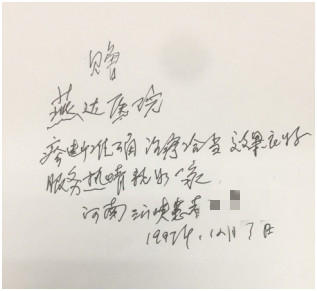 赠
燕达医院
诊断准确 治疗恰当 效果良好
服务热情亲如一家
河南三门峡患者
1997年12月7日